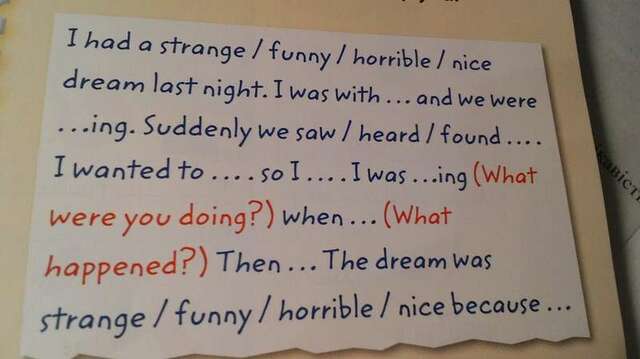 I had a strange / funny / horrible / nice
dream last night. I was with ... and we were
...ing. Suddenly we saw / heard / found ....
I wanted to .... so I .... I was ...ing (What
were you doing?) when ... (What
happened?) Then ... The dream was
strange / funny / horrible / nice because ...